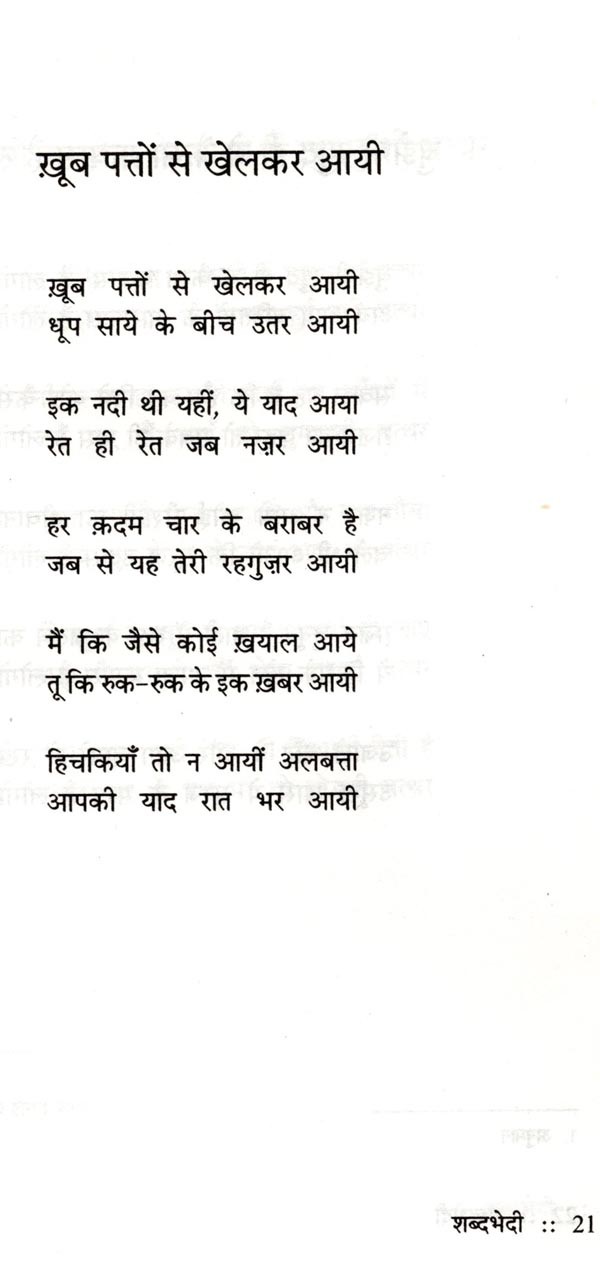 ख़ूब पत्तों से खेलकर आयी
ख़ूब पत्तों से खेलकर आयी
धूप साये के बीच उतर आयी
इक नदी थी यहीं, ये याद आया
रेत ही रेत जब नज़र आयी
हर क़दम चार के बराबर है
जब से यह तेरी रहगुज़र आयी
मैं कि जैसे कोई ख़याल आये
तू कि रुक-रुक के इक ख़बर आयी
हिचकियाँ तो न आयीं अलबत्ता
आपकी याद रात भर आयी
शब्दभेदी :: 21